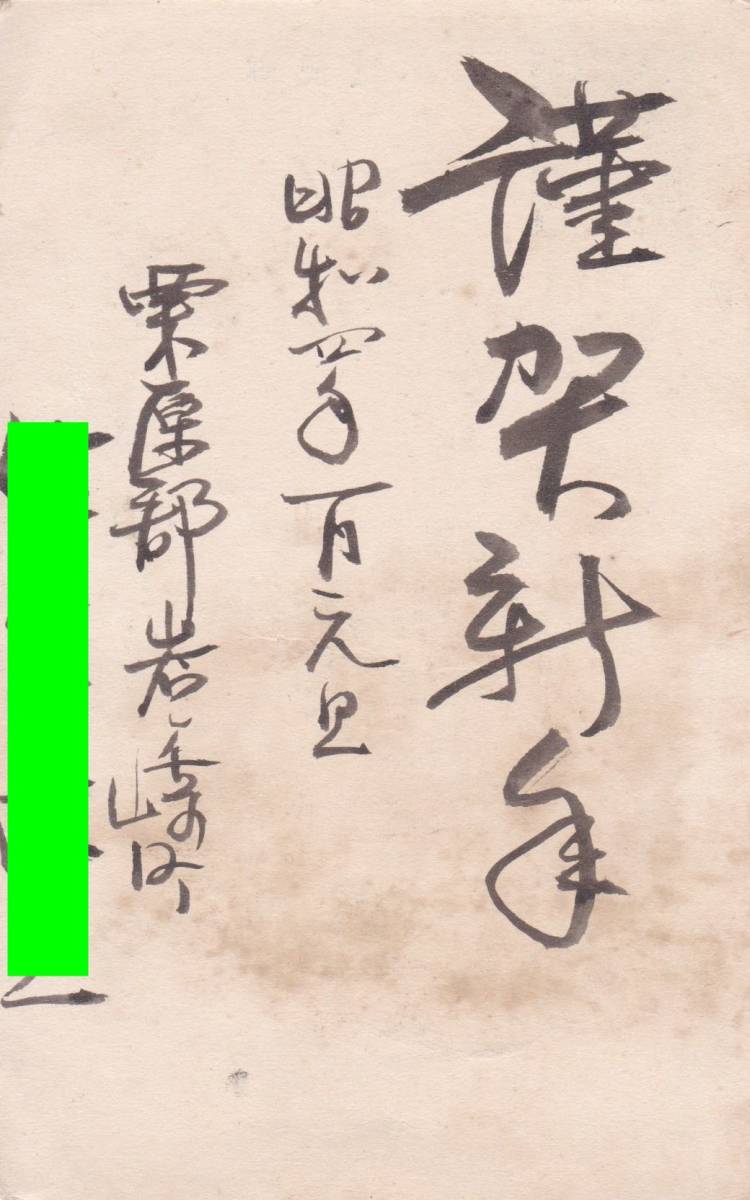 謹賀新年
昭和四年一月元旦
栗原郡岩ヶ崎町